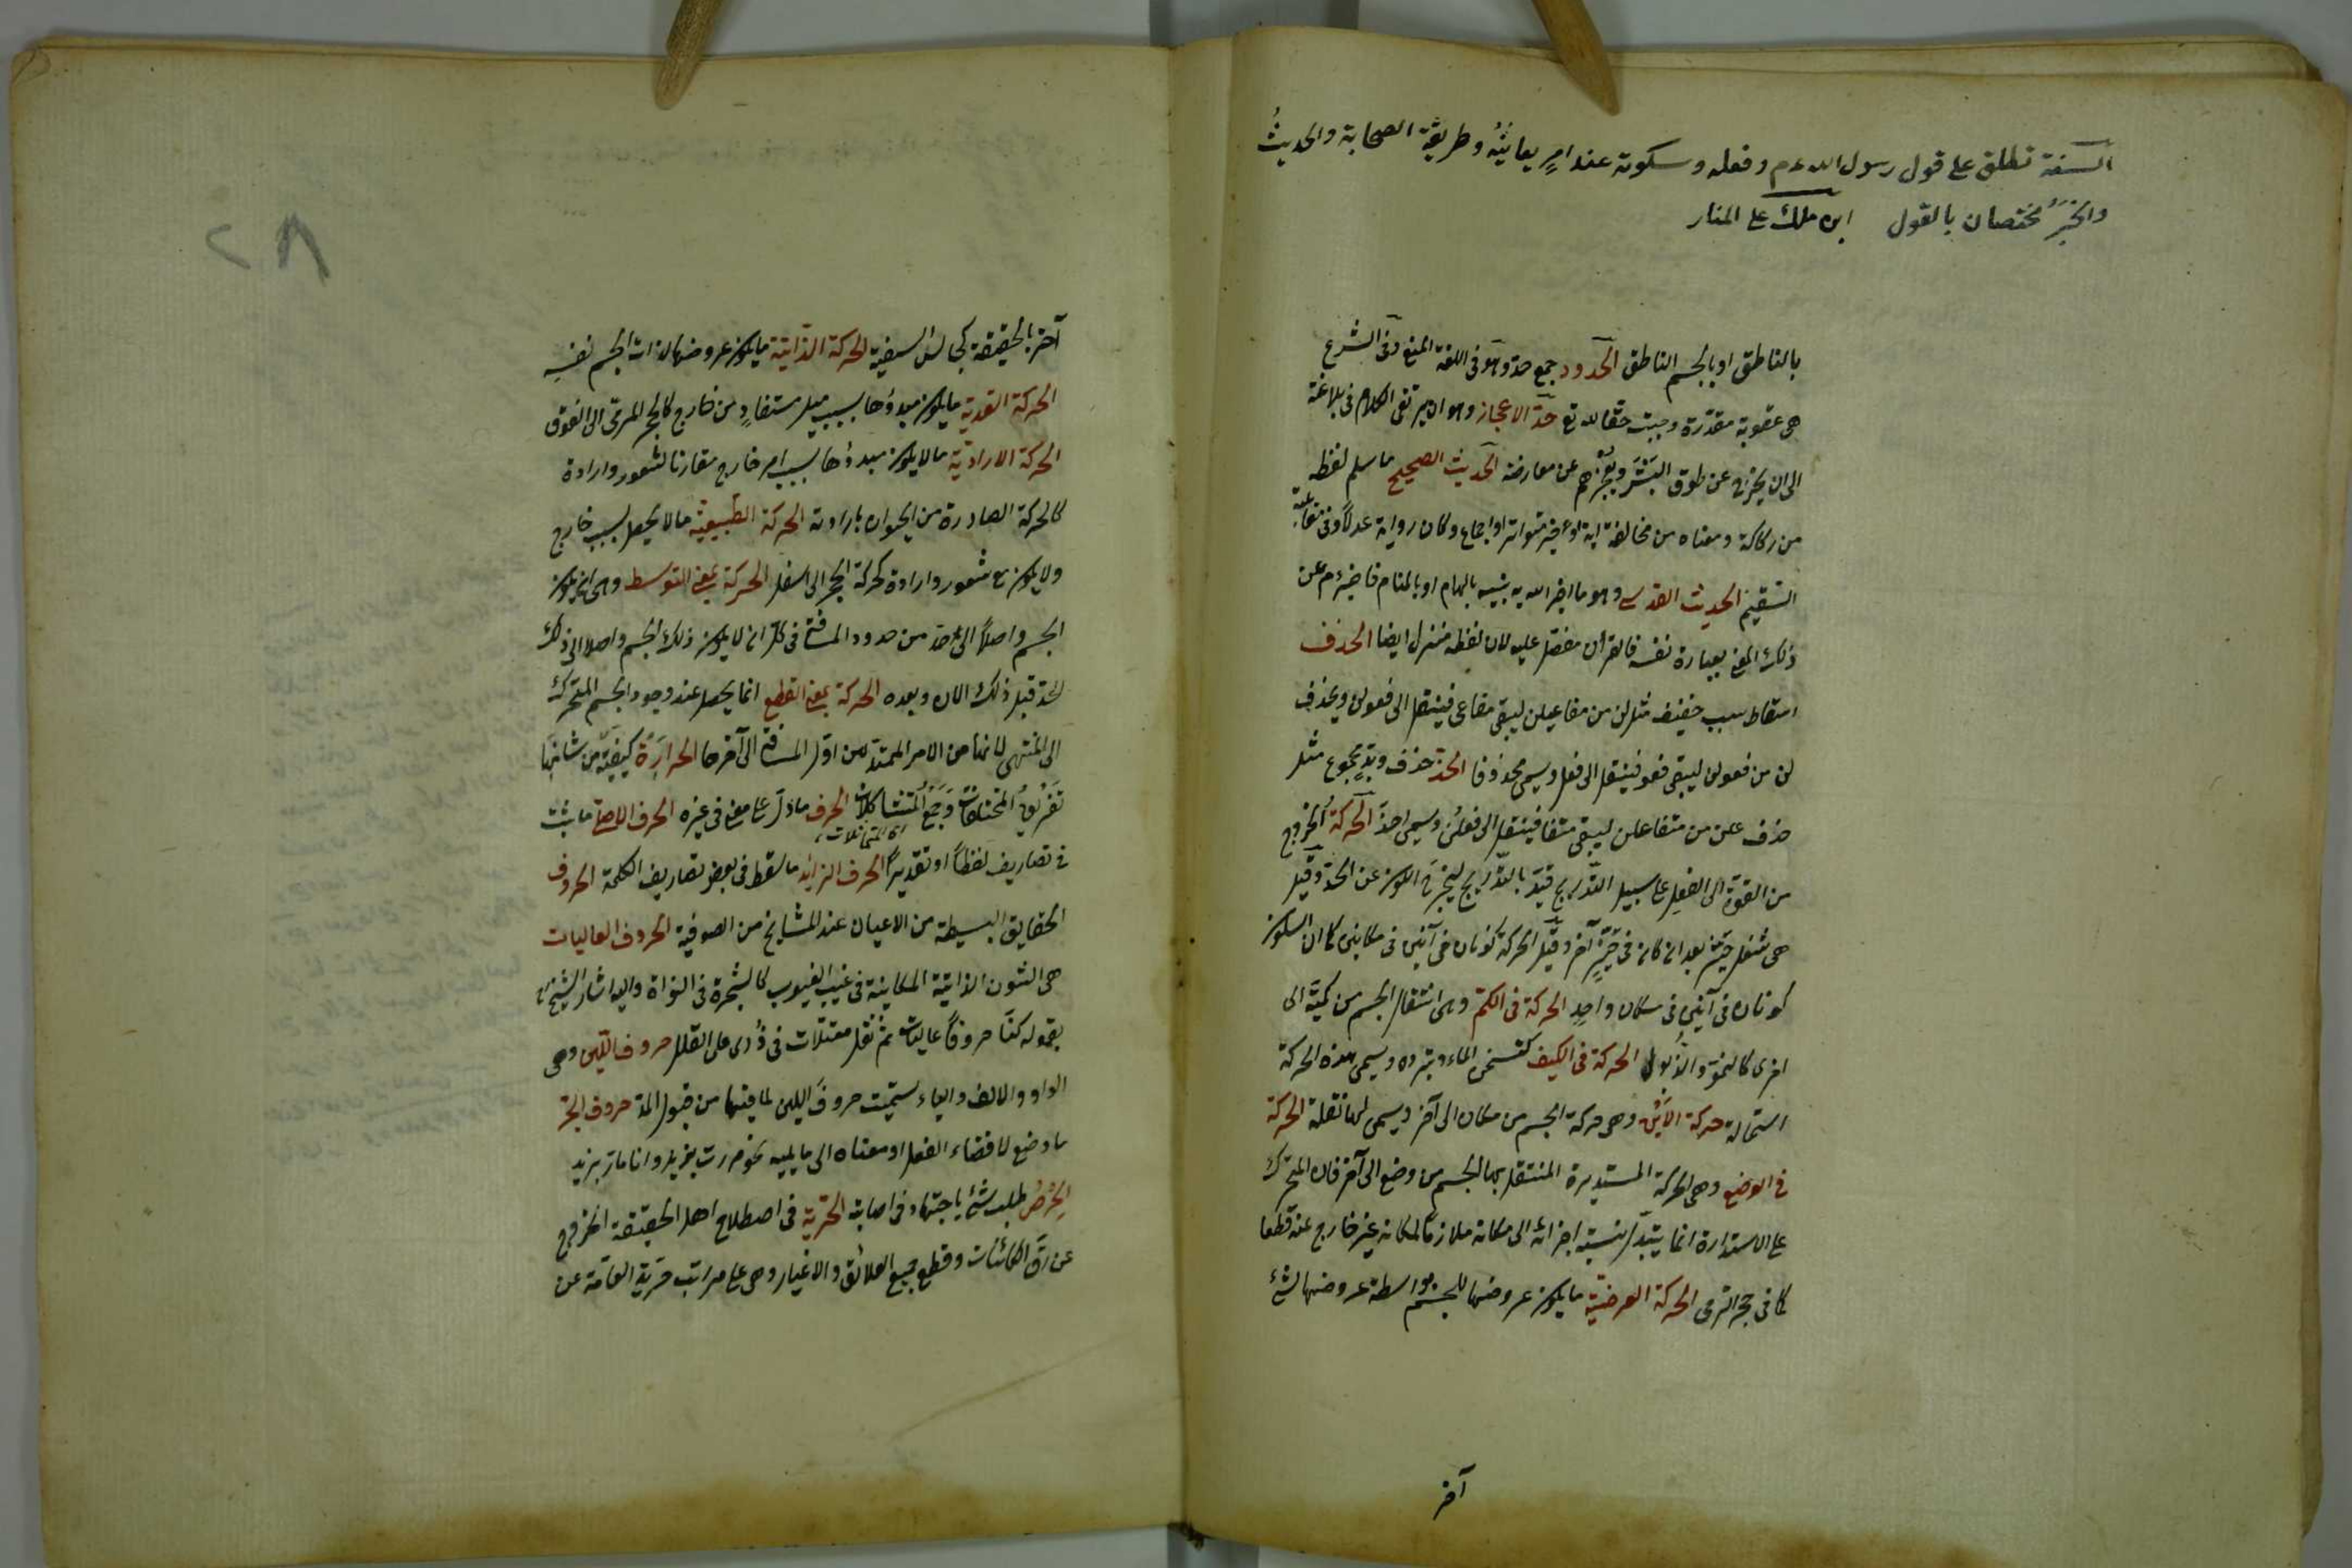 السنة تطلق على قول رسول الله عم وفعله وسكوته عند امرٍ يعاينُه وطريقة الصحابة والحديثُ
والخبرُ مختصان بالقول ابن ملك على المنار
بالناطق او بالجسم الناطق الحدود جمع حد وهو فى اللغة المنع وفى الشرع
هى عقوبة مقدّرة وجبت حقا لله تع حدّ الاعجاز وهو ان يرتقى الكلام فى بلاغته
الى ان يخرج عن طوق البَشَر ويُعجزهم عن معارضة الحديث الصحيح ما سلم لفظه
من ركاكة ومعناه من مخالفة اية او خبر متواتر او اجماع وكان رواية عدلٌ وفى مقابلة
السقيم الحديث القدسى وهو ما اخبر الله به نبيه بالهام او بالمنام فاخبر عم عن
ذلك المعنى بعبارة نفسه فالقرأن مفضّل عليه لان لفظه منزل ايضا الحذف
اسقاط سبب خفيف مثل لن من مفاعيلن ليبقى مفاعى فينتقل الى فعولن ويحذف
لن من فعولن ليبقى فعو فينتقل الى فعل ويسمى محذوفا الحذّ حذف وتدٍ مجموع مثل
حذف علن من متفاعلن ليبقى متفا فينتقل الى فعلن ويسمى احذّ الحركة الخروج
من القوّة الى الفعل على سبيل التدريج قيّد بالتدريج ليخرج الكون عن الحدّ وقيل
هى شغل حيّز بعد ان كان فى حيّزٍ آخر وقيل الحركة كونان فى آنين فى مكانين كما ان السكون
كونان فى آنين فى مكان واحد الحركة فى الكمّ وهى انتقال الجسم من كميّة الى
اخرى كالنمو والذّبول الحركة فى الكيف كتسخن الماء وتبرده ويسمى هذه الحركة
استحالة حركة الاَيْن وهى حركة الجسم من مكان الى آخر ويسمى لها نقلة الحركة
فى الوضع وهى الحركة المستديرة المنتقل بها الجسم من وضع الى آخر فان المتحرك
على الاستدارة انما يتبدّل نسبة اجزائه الى مكانه ملازما لمكانه غير خارج عنه قطعا
كما فى حجر الرحى الحركة العرضيّة ما يكون عروضها للجسم بواسطة عروضها لشئ
آخر
٢٨
آخر بالحقيقة كجالس السفينة الحركة الذاتية ما يكون عروضها لذات الجسم نفسِه
الحركة القسرية ما يكون مبدؤها بسبب ميل مستفادٍ من خارج كالحجر المرمّى الى الفوق
الحركة الارادية ما لا يكون مبدؤها بسبب امر خارج مقارنا لشعور وارادة
كالحركة الصادرة من الحيوان بارادته الحركة الطّبيعيّة ما لا يحصل بسبب خارج
ولا يكون مع شعور وارادة كحركة الحجر الى اسفل الحركة بمعنى التوسط وهى ان يكون
الجسم واصلاً الى حدّ من حدود المسافة فى كلّ ان لا يكون ذلك الجسم واصلا الى ذلك
الحدّ قبل ذلك الان وبعده الحركة بمعنى القطع انما يحصل عند وجود الجسم المتحرك
الى المنتهى لانها هى الامر الممتدّ من اول المسافة الى آخرها الحرارَة كيفيّة من شانها
تَفْريقُ المختلفات وجَمْعُ المُتشاكلات الحرف ما دلّ على معنى فى غيره الحرف الاصلى ما ثبت
اى المتماثلات
فى تصاريف لفظاً او تقديراً الحرف الزائد ما سقط فى بعض تصاريف الكلمة الحروف
الحقايق البسيطة من الاعيان عند المشايخ من الصوفية الحروف العاليات
هى الشئون الذاتية الكاينة فى غيب الغيوب كالشجرة فى النواة واليه اشار الشيخ
بقوله كنّا حروفاً عاليات لم نُقل متعلّقات فى ذُرى على القلل حروف اللّين وهى
الواو والالف والياء سمّيت حروفَ اللين لما فيها من قبول المدّ حروف الجرّ
ما وضع لافضاء الفعل او معناه الى ما يليه نحو مررت بزيد وانا مارّ بزيد
الحِرْصُ طلب شئ باجتهاد فى اصابته الحُرّية فى اصطلاح اهل الحقيقة الخروج
عن رقّ الكائنات وقطع جميع العلائق والاغيار وهى على مراتب حُرّية العامّة عن